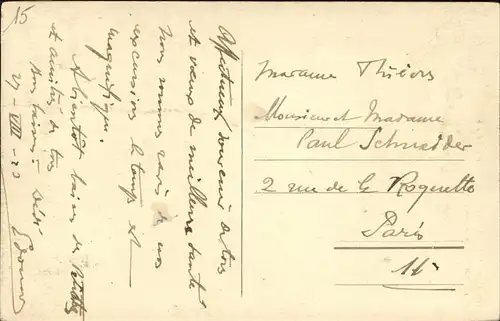 15
Affectueux souvenir de tous
et vœux de meilleure santé
Nous sommes ravis de nos
excursions le temps est
magnifique.
A bientôt bains de
et amitiés de tous
Nos baisers.
27 - VIII - 23
Edouard
Madame Thiers
Monsieur et Madame
Paul Schneider
2 rue de la Roquette
Paris
11e